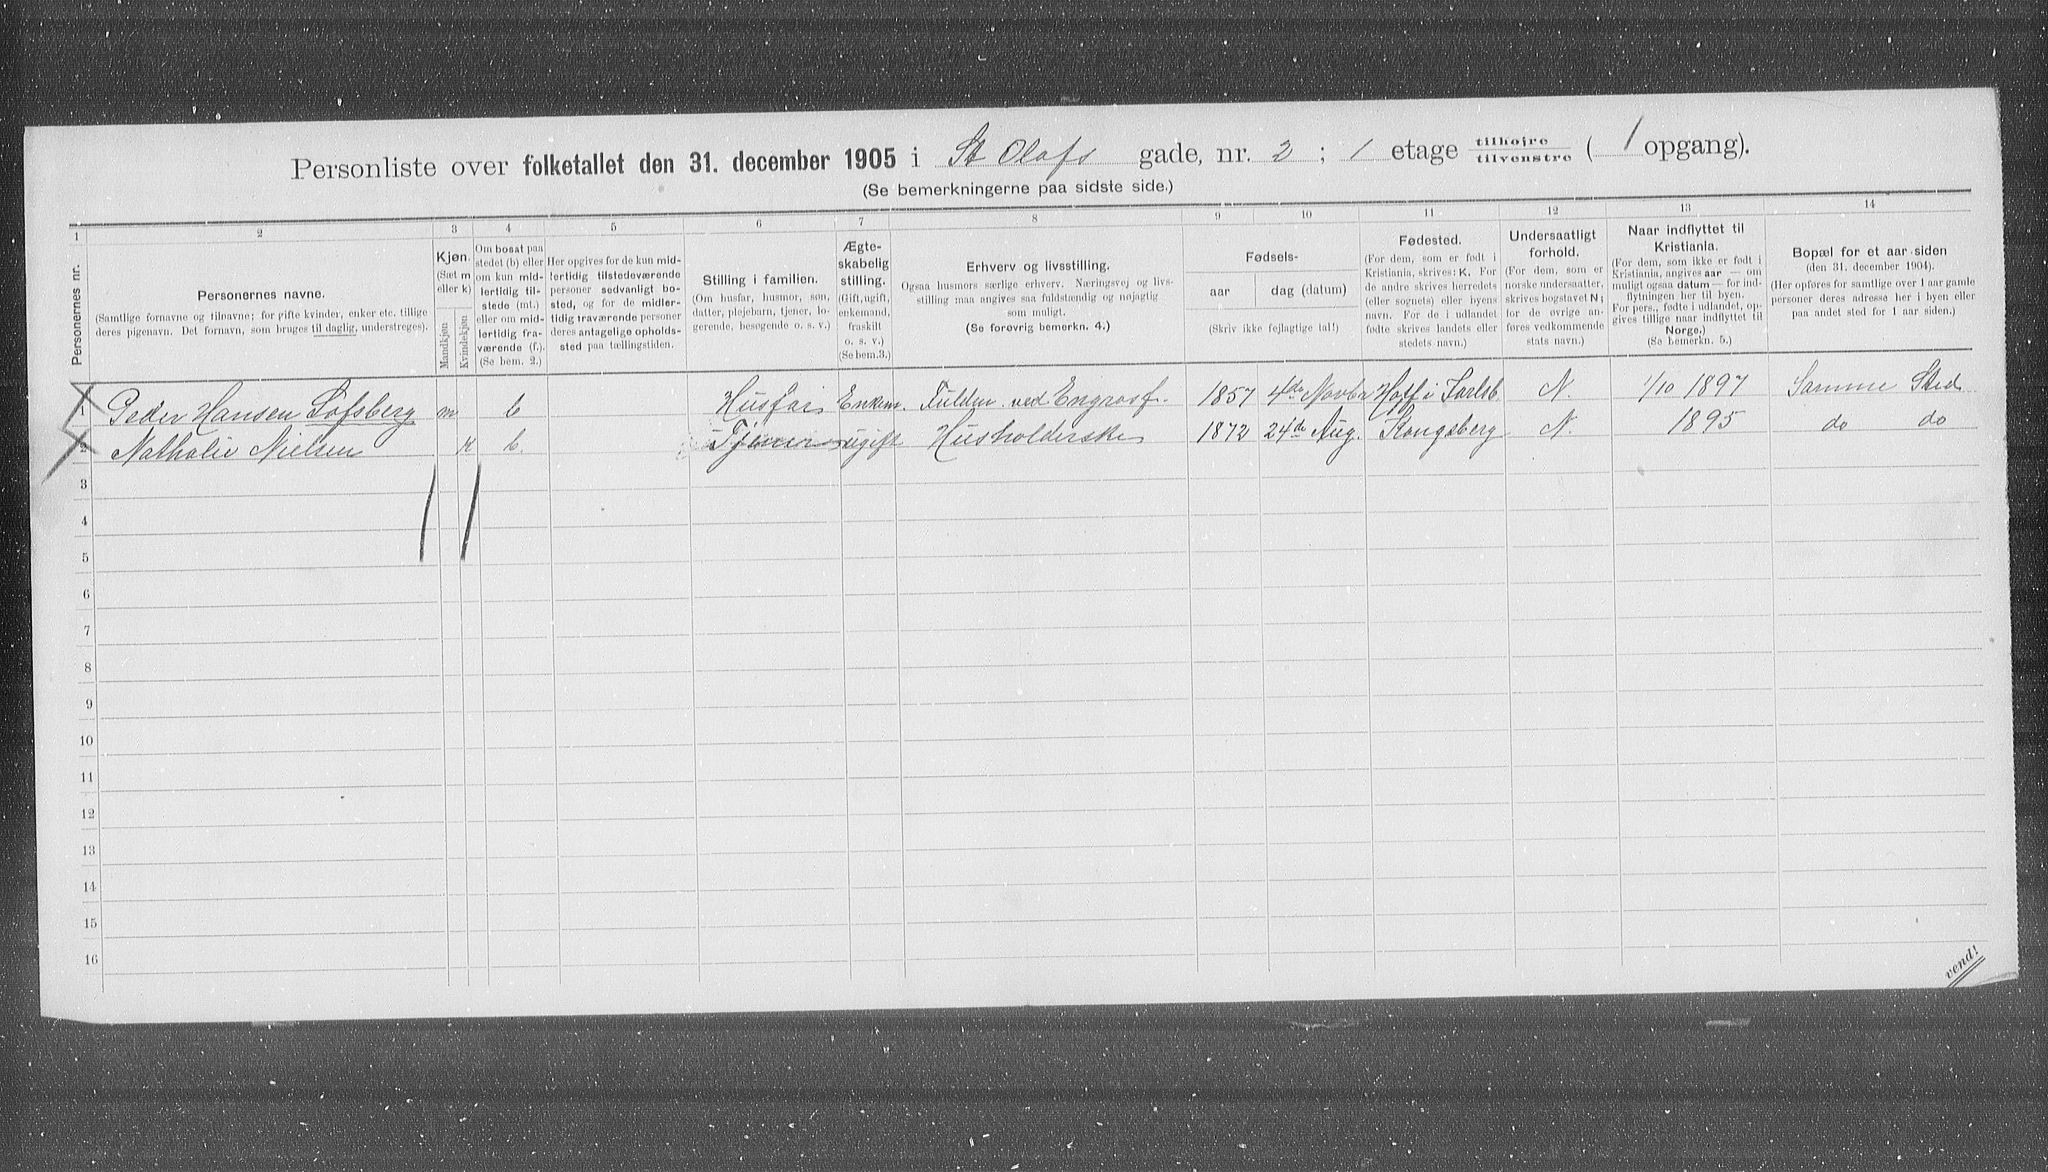 Personliste over folketallet den 31. december 1905 i St Olafs gade, nr. 2 ; 1 etage tilhøjre / tilvenstre ( 1 opgang).
(Se bemerkningerne paa sidste side.)
1 2 3 4 5 6 7 8 9 10 11 12 13 14
Personernes nr.
Personernes navne.
(Samtlige fornavne og tilnavne; for gifte kvinder, enker etc. tillige
deres pigenavn. Det fornavn, som bruges til daglig, understreges).
Kjøn.
(Sæt m
eller k)
Mandkjøn
Kvindekjøn
Om bosat paa
stedet (b) eller
om kun mid-
lertidig til-
stede (mt.)
eller om mid-
lertidig fra-
værende (f.).
(Se bem. 2.)
Her opgives for de kun mid-
lertidig tilstedeværende
personer sedvanligt bo-
sted, og for de midler-
tidig fraværende personer
deres antagelige opholds-
sted paa tællingstiden.
Stilling i familien.
(Om husfar, husmor, søn,
datter, plejebarn, tjener, lo-
gerende, besøgende o. s. v.)
Ægte-
skabelig
stilling.
(Gift, ugift,
enkemand,
fraskilt
o. s. v.)
(Se bem.3.)
Erhverv og livsstilling.
Ogsaa husmors særlige erhverv. Næringsvej og livs-
stilling maa angives saa fuldstændig og nøjagtig
som muligt.
(Se forøvrig bemerkn. 4.)
Fødsels-
aar dag (datum)
(Skriv ikke fejlagtige tal!)
Fødested.
(For dem, som er født i
Kristiania, skrives: K. For
de andre skrives herredets
(eller sognets) eller byens
navn. For de i udlandet
fødte skrives landets eller
stedets navn.)
Undersaatligt
forhold.
(For dem, som er
norske undersaatter,
skrives bogstavet N;
for de øvrige an-
føres vedkommende
stats navn.)
Naar indflyttet til
Kristiania.
(For dem, som ikke er født i
Kristiania, angives aar — om
muligt ogsaa datum — for ind-
flytningen her til byen.
For pers., fødte i udlandet, op-
gives tillige naar indflyttet til
Norge.)
(Se bemerkn. 5.)
Bopæl for et aar siden
(den 31. december 1904).
(Her opføres for samtlige over 1 aar gamle
personer deres adresse her i byen eller
paa andet sted for 1 aar siden.)
1 Peder Hansen Lofsberg m b Husfar Enkem. Fuldm. ved Engrosf. 1857 4de Novbr Hoff i Jarlsb. N. 1/10 1897 Samme Sted
2 Nathalie Nielsen k b. Tjener ugift Husholderske 1872 24de Aug. Kongsberg N. 1895 do do
3
4
5
6
7
8
9
10
11
12
13
14
15
16
vend!